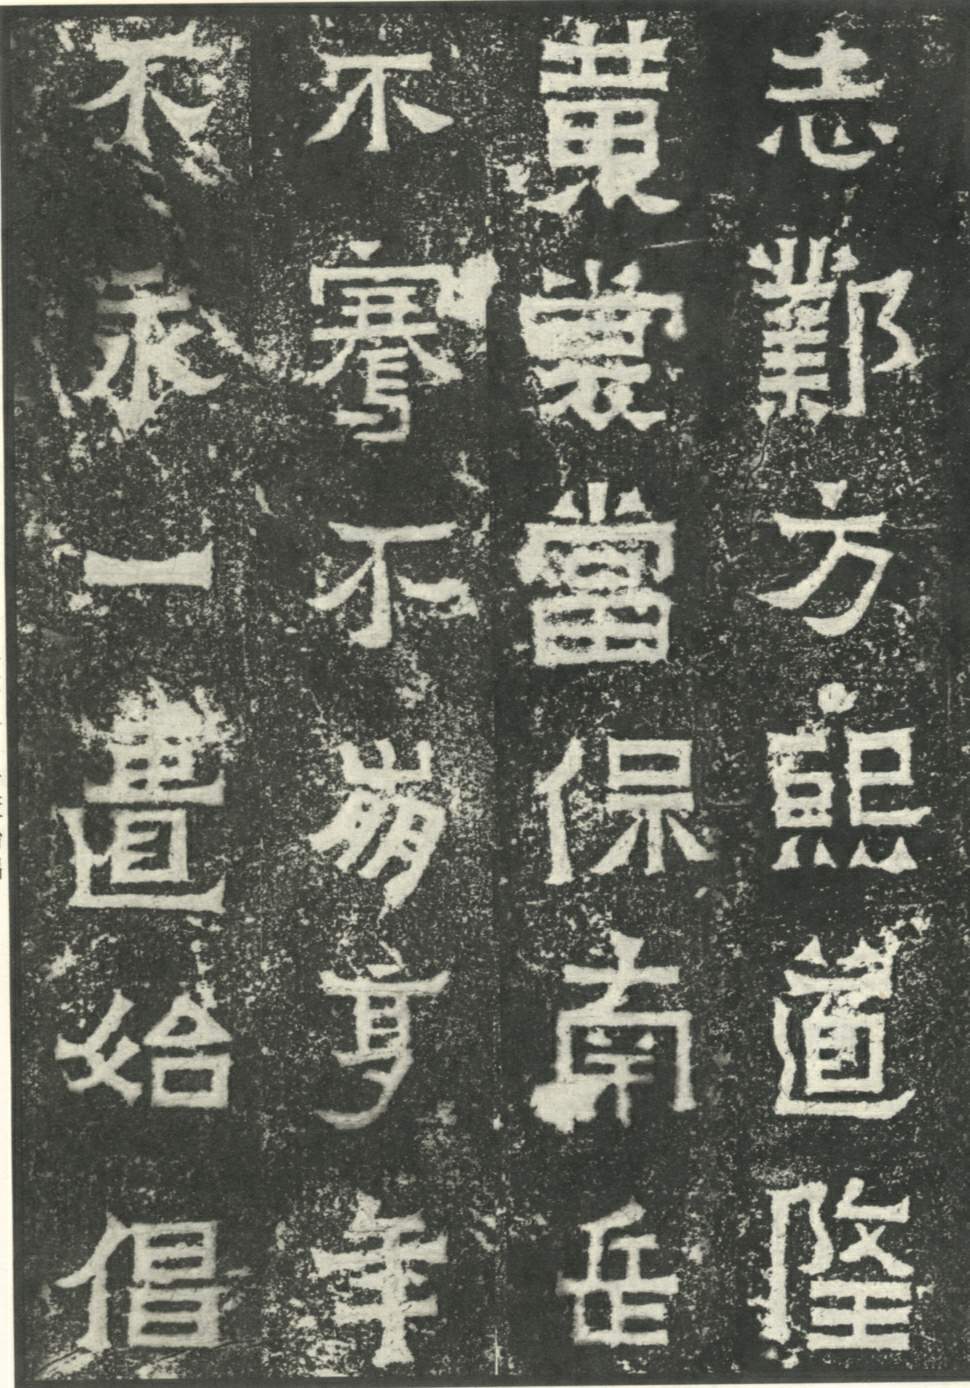 志鄴方熙道隆
黃裳當保南岳
不騫不崩享年
不永一匱始倡